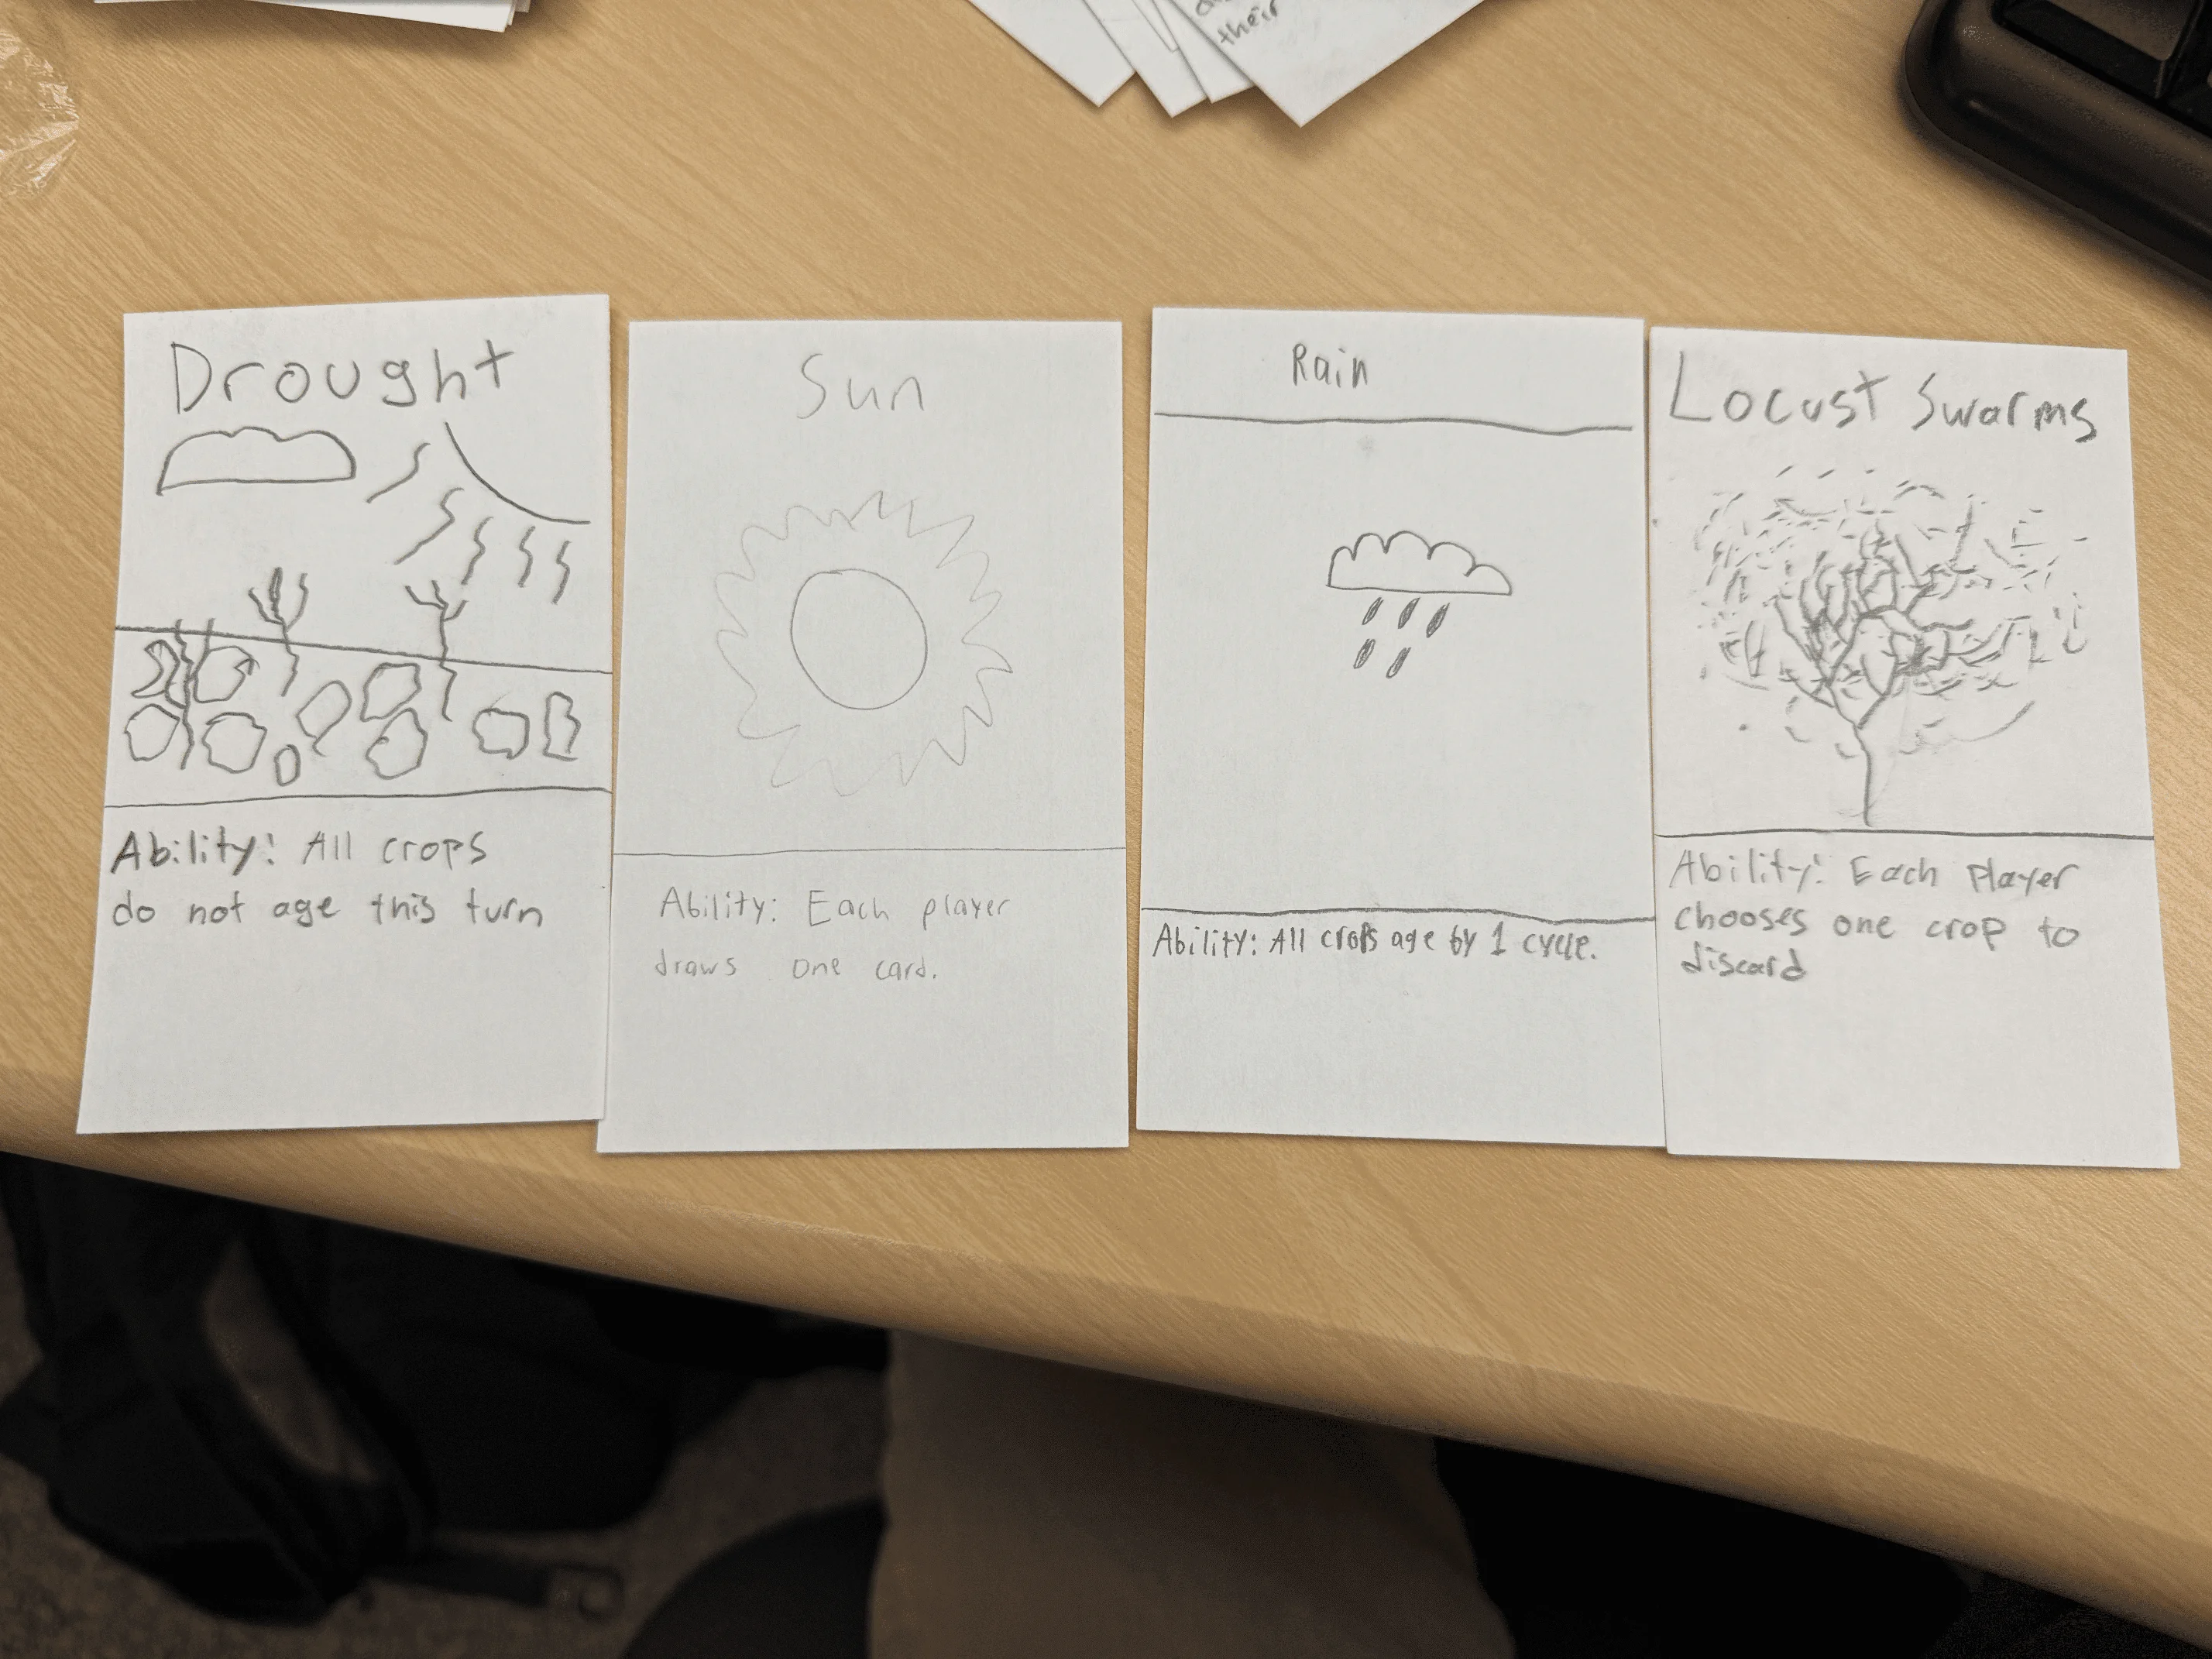 their
Drought
Ability: All crops
do not age this turn
Sun
Ability: Each player
draws one card.
Rain
Ability: All crops age by 1 cycle.
Locust Swarms
Ability: Each Player
chooses one crop to
discard